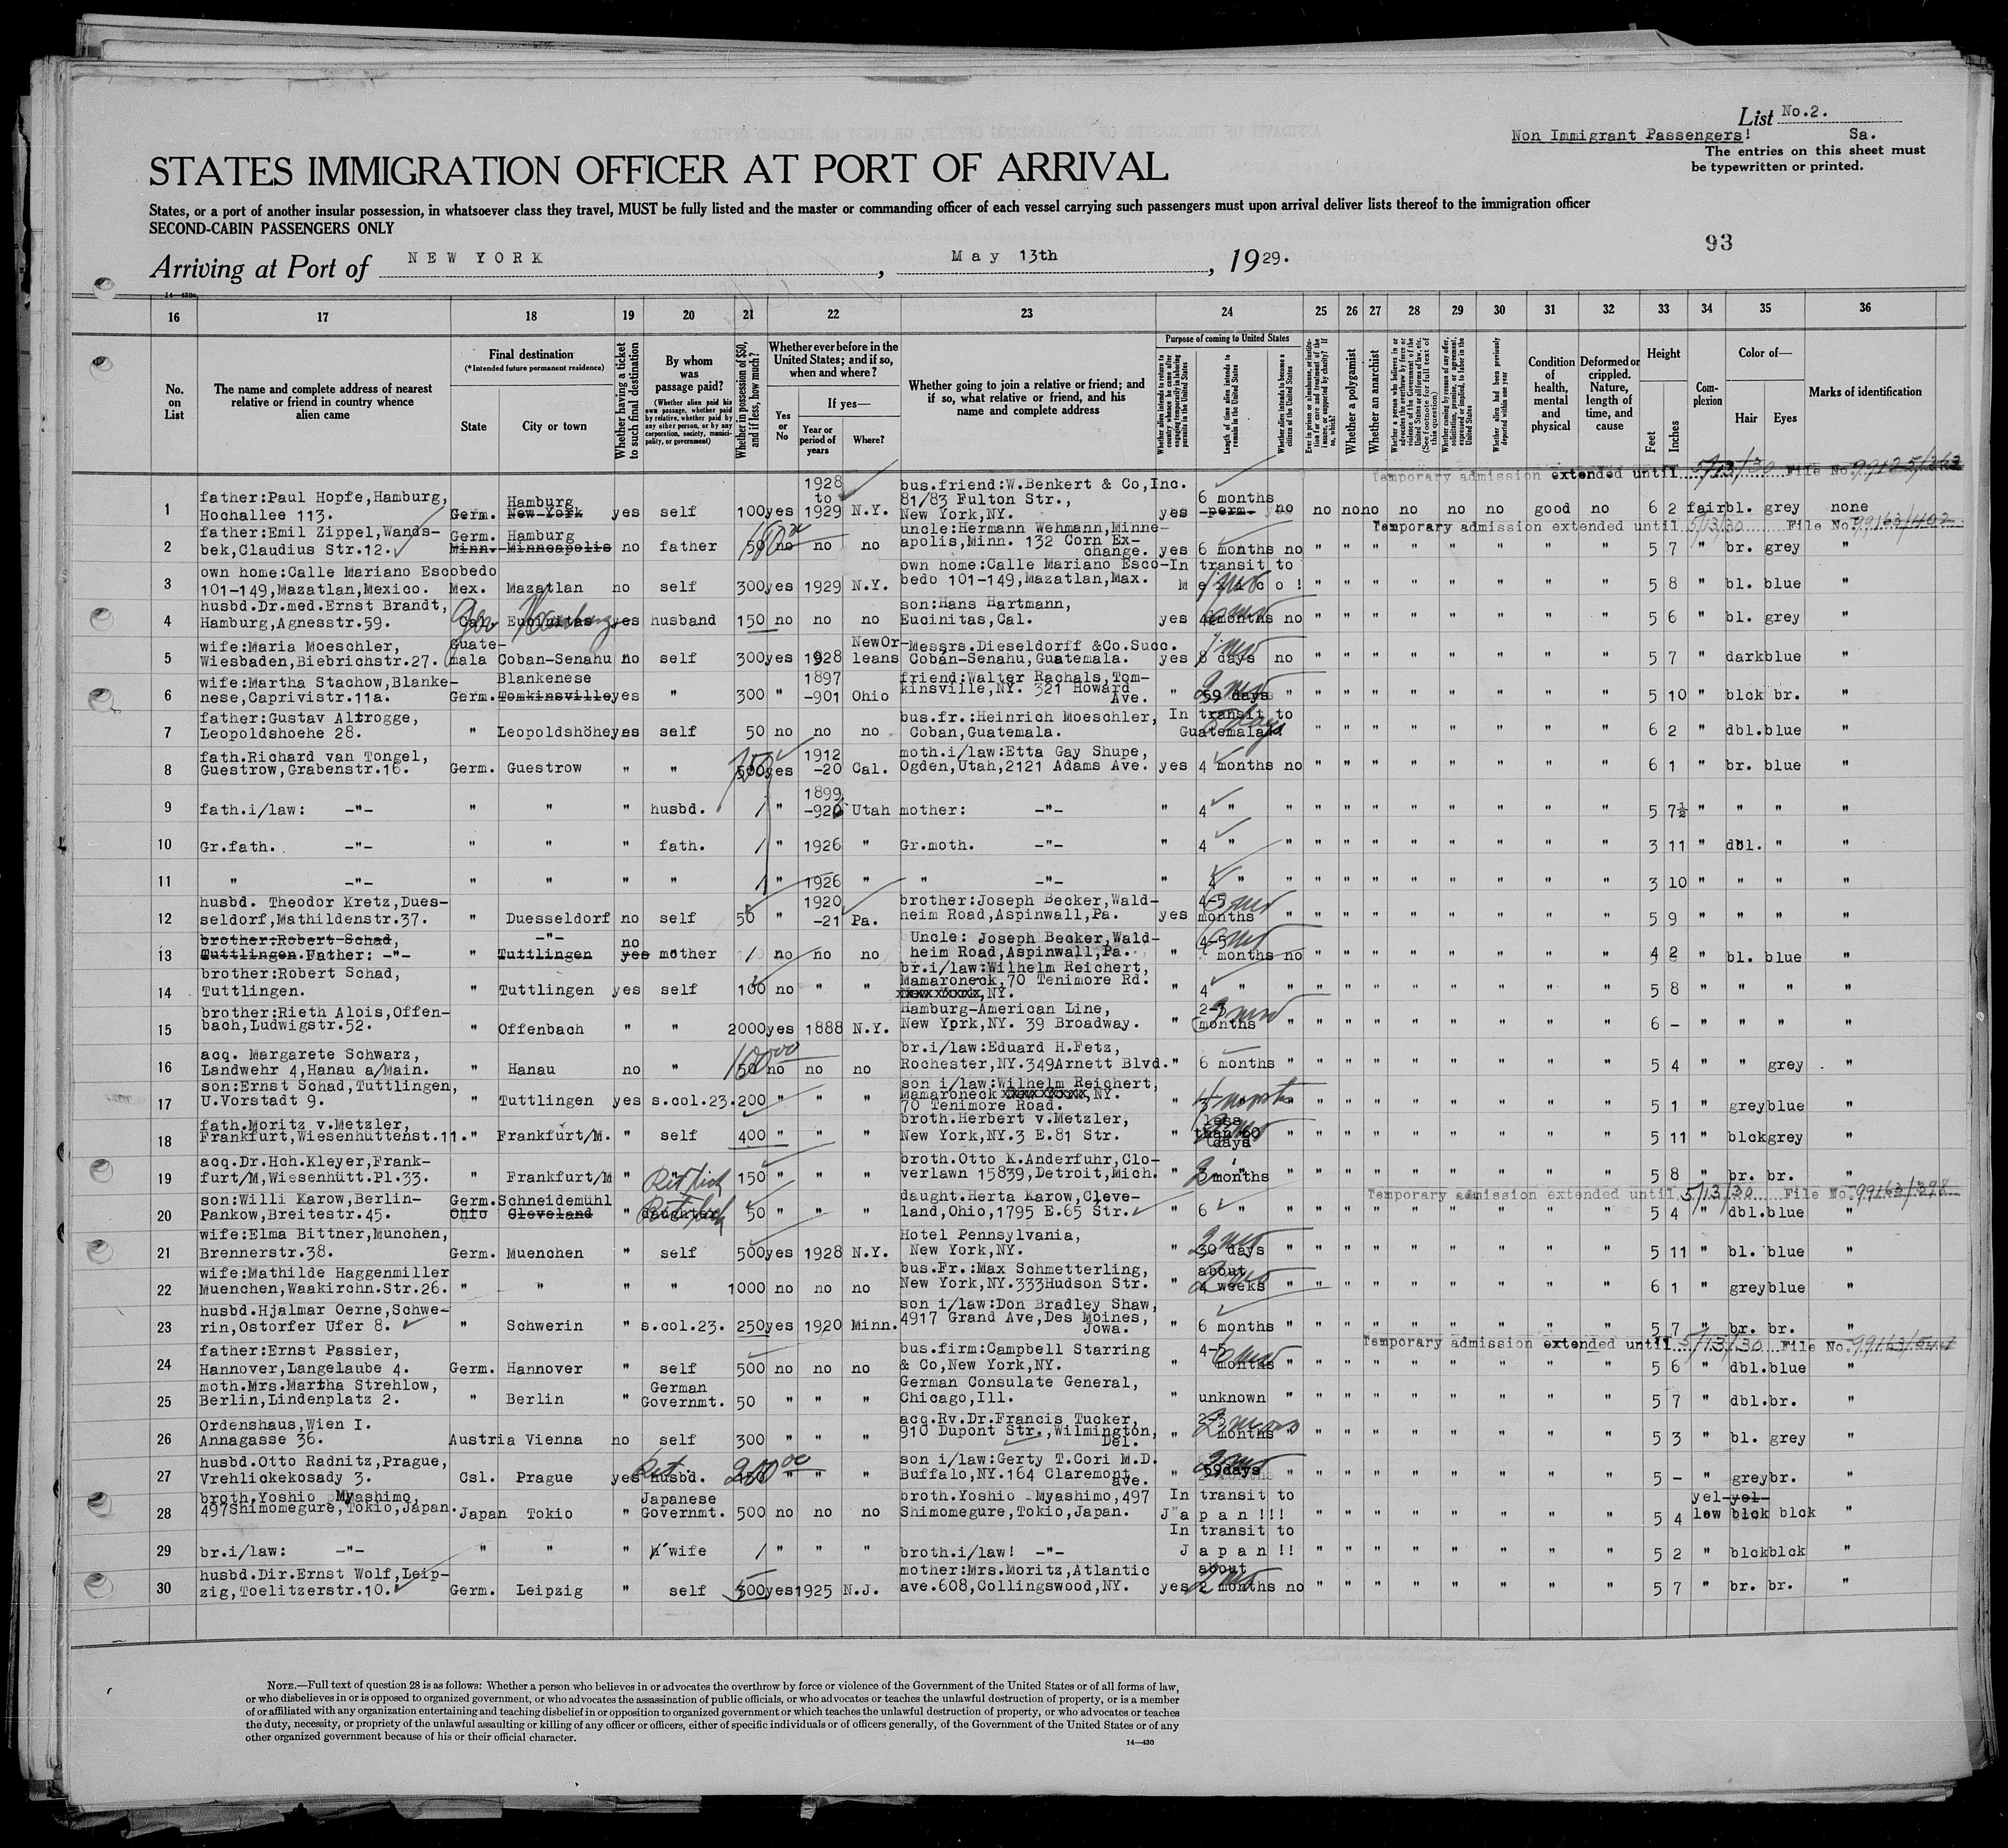 List No.2.
Non Immigrant Passengers! Sa.
The entries on this sheet must
be typewritten or printed.
STATES IMMIGRATION OFFICER AT PORT OF ARRIVAL
States, or a port of another insular possession, in whatsoever class they travel, MUST be fully listed and the master or commanding officer of each vessel carrying such passengers must upon arrival deliver lists thereof to the immigration officer
SECOND-CABIN PASSENGERS ONLY
93
Arriving at Port of NEW YORK, May 13th, 1929.
14—430a
16 17 18 19 20 21 22 23 24 25 26 27 28 29 30 31 32 33 34 35 36
No. on List
The name and complete address of nearest relative or friend in country whence alien came
Final destination (*Intended future permanent residence)
State City or town
Whether having a ticket to such final destination
By whom was passage paid?
(Whether alien paid his own passage, whether paid by relative, whether paid by any other person, or by any corporation, society, municipality, or government)
Whether in possession of $50, and if less, how much?
Whether ever before in the United States; and if so, when and where?
Yes or No
If yes—
Year or period of years Where?
Whether going to join a relative or friend; and if so, what relative or friend, and his name and complete address
Purpose of coming to United States
Whether alien intends to return to country whence he came after engaging temporarily in laboring pursuits in the United States
Length of time alien intends to remain in the United States
Whether alien intends to become a citizen of the United States
Whether a polygamist
Whether an anarchist
Whether alien had been previously deported within one year
Condition of health, mental and physical
Deformed or crippled. Nature, length of time, and cause
Height
Feet Inches
Complexion
Color of—
Hair Eyes
Marks of identification
Temporary admission extended until 5/13/30 File No.
1 father:Paul Hopfe,Hamburg, Hochallee 113. Germ. Hamburg New York yes self 100 yes 1928 to 1929 N.Y. bus.friend:W.Benkert & Co,Inc. 81/83 Fulton Str., New York,NY. yes 6 months perm. no no no no no no no good no 6 2 fair bl. grey none
Temporary admission extended until 5/13/30 File No. 99163/402
2 father:Emil Zippel,Wandsbek,Claudius Str.12. Germ. Hamburg Minn. Minneapolis no father 50 no no no uncle:Hermann Wehmann,Minneapolis,Minn. 132 Corn Exchange. yes 6 months no " " " " " " " " 5 7 " br. grey "
3 own home:Calle Mariano Escobedo 101-149,Mazatlan,Mexico. Mex. Mazatlan no self 300 yes 1929 N.Y. own home:Calle Mariano Escobedo 101-149,Mazatlan,Max. In transit to Mexico! " " " " " " " " 5 8 " bl. blue "
4 husbd.Dr.med.Ernst Brandt, Hamburg,Agnesstr.59. Cal. Eucinitas Hamburg yes husband 150 no no no son:Hans Hartmann, Eucinitas,Cal. yes months no " " " " " " " " 5 6 " bl. grey "
5 wife:Maria Moeschler, Wiesbaden,Biebrichstr.27. Guatemala Coban-Senahu no self 300 yes 1928 New Orleans Messrs.Dieseldorff &Co.Succ. Cobán-Senahu,Guatemala. yes 8 days no " " " " " " " " 5 7 " dark blue "
6 wife:Martha Stachow,Blankenese,Caprivistr.11a. Germ. Blankenese Tomkinsville yes " 300 " 1897 -901 Ohio friend:Walter Rachals,Tomkinsville,NY. 321 Howard Ave. " 59 days " " " " " " " " " 5 10 " blck br. "
7 father:Gustav Altrogge, Leopoldshoehe 28. " Leopoldshöhe yes self 50 no no no bus.fr.:Heinrich Moeschler, Coban,Guatemala. In transit to Guatemala 5 days " " " " " " " " 6 2 " dbl. blue "
8 fath.Richard van Tongel, Guestrow,Grabenstr.16. Germ. Guestrow " " 500 yes 1912 -20 Cal. moth.i/law:Etta Gay Shupe, Ogden,Utah,2121 Adams Ave. yes 4 months no " " " " " " " " 6 1 " br. blue "
9 fath.i/law: -"- " " " husbd. / " 1899 -920 Utah mother: -"- " 4 " " " " " " " " " " 5 7½ " " " "
10 Gr.fath. -"- " " " fath. / " 1926 " Gr.moth. -"- " 4 " " " " " " " " " " 3 11 " dbl. " "
11 " -"- " " " " / " 1926 " " -"- " 4 " " " " " " " " " " 3 10 " " " "
12 husbd. Theodor Kretz,Duesseldorf,Mathildenstr.37. " Duesseldorf no self 50 " 1920 -21 Pa. brother:Joseph Becker,Waldheim Road,Aspinwall,Pa. yes 4-5 months " " " " " " " " " 5 9 " " " "
13 brother:Robert Schad, Tuttlingen. Father: -"- " -"- Tuttlingen no yes mother / no no no Uncle: Joseph Becker,Waldheim Road,Aspinwall,Pa. " 4-5 months no " " " " " " " " 4 2 " bl. blue "
14 brother:Robert Schad, Tuttlingen. " Tuttlingen yes self 100 no " " br.i/law:Wilhelm Reichert, Mamaroneck,70 Tenimore Rd. xxxxxxxxx,NY. " 4 " " " " " " " " " " 5 8 " " " "
15 brother:Rieth Alois,Offenbach,Ludwigstr.52. " Offenbach " " 2000 yes 1888 N.Y. Hamburg-American Line, New Yprk,NY. 39 Broadway. " 2-3 months " " " " " " " " " 6 - " " " "
16 acq. Margarete Schwarz, Landwehr 4,Hanau a/Main. " Hanau no " 50 no no no br.i/law:Eduard H.Fetz, Rochester,NY.349Arnett Blvd. " 6 months " " " " " " " " " 5 4 " " grey "
17 son:Ernst Schad,Tuttlingen, U.Vorstadt 9. " Tuttlingen yes s.col.23. 200 " " " son i/law:Wilhelm Reichert, Mamaroneck xxxxxxxxx,NY. 70 Tenimore Road. " " " " " " " " " " 5 1 " grey blue "
18 fath.Moritz v.Metzler, Frankfurt,Wiesenhüttenst.11. " Frankfurt/M. " self 400 " " " broth.Herbert v.Metzler, New York,NY.3 E.81 Str. " less than 60 days " " " " " " " " " 5 11 " blck grey "
19 acq.Dr.Hch.Kleyer,Frankfurt/M,Wiesenhütt.Pl.33. " Frankfurt/M " " 150 " " " broth.Otto K.Anderfuhr,Cloverlawn 15839,Detroit,Mich. " months " " " " " " " " " 5 8 " br. br. "
Temporary admission extended until 5/13/30 File No. 99163/398
20 son:Willi Karow,Berlin-Pankow,Breitestr.45. Germ. Schneidemühl Ohio Cleveland " daughter 50 " " " daught.Herta Karow,Cleveland,Ohio,1795 E.65 Str. " 6 " " " " " " " " " " 5 4 " dbl. blue "
21 wife:Elma Bittner,Munchen, Brennerstr.38. Germ. Muenchen " self 500 yes 1928 N.Y. Hotel Pennsylvania, New York,NY. " 30 days " " " " " " " " " 5 11 " bl. blue "
22 wife:Mathilde Haggenmiller Muenchen,Waakirchn.Str.26. " " " " 1000 no no no bus.Fr.:Max Schmetterling, New York,NY.333Hudson Str. " about 4 weeks " " " " " " " " " 6 1 " grey blue "
23 husbd.Hjalmar Oerne,Schwerin,Ostorfer Ufer 8. " Schwerin " s.col.23. 250 yes 1920 Minn. son i/law:Don Bradley Shaw, 4917 Grand Ave,Des Moines, Jowa. " 6 months " " " " " " " " " 5 7 " br. br. "
Temporary admission extended until 5/13/30 File No.
24 father:Ernst Passier, Hannover,Langelaube 4. Germ. Hannover " self 500 no no no bus.firm:Campbell Starring & Co,New York,NY. " 4-5 months " " " " " " " " " 5 6 " dbl. blue "
25 moth.Mrs.Martha Strehlow, Berlin,Lindenplatz 2. " Berlin " German Governmt. 50 " " " German Consulate General, Chicago,Ill. " unknown " " " " " " " " " 5 7 " dbl. br. "
26 Ordenshaus,Wien I. Annagasse 36. Austria Vienna no self 300 " " " acq.Rv.Dr.Francis Tucker, 910 Dupont Str.,Wilmington, Del. " 2-3 months " " " " " " " " " 5 3 " bl. grey "
27 husbd.Otto Radnitz,Prague, Vrehlickekosady 3. Csl. Prague yes husbd. " " " son i/law:Gerty T.Cori M.D. Buffalo,NY.164 Claremont ave. " 59days " " " " " " " " " 5 - " grey br. "
28 broth.Yoshio Myashimo, 497Shimomegure,Tokio,Japan. Japan Tokio " Japanese Governmt. 500 no no no broth.Yoshio Myashimo,497 Shimomegure,Tokio,Japan. In transit to Japan!!! " " " " " " " " 5 4 yellow yel- blck blck "
29 br.i/law: -"- " " " wife / " " " broth.i/law! -"- In transit to Japan!! " " " " " " " " 5 2 " blck blck "
30 husbd.Dir.Ernst Wolf,Leipzig,Toelitzerstr.10. Germ. Leipzig " self 500 yes 1925 N.J. mother:Mrs.Moritz,Atlantic ave.608,Collingswood,NY. yes about 2 months no " " " " " " " " 5 7 " br. br. "
NOTE.—Full text of question 28 is as follows: Whether a person who believes in or advocates the overthrow by force or violence of the Government of the United States or of all forms of law,
or who disbelieves in or is opposed to organized government, or who advocates the assassination of public officials, or who advocates or teaches the unlawful destruction of property, or is a member
of or affiliated with any organization entertaining and teaching disbelief in or opposition to organized government or which teaches the unlawful destruction of property, or who advocates or teaches
the duty, necessity, or propriety of the unlawful assaulting or killing of any officer or officers, either of specific individuals or of officers generally, of the Government of the United States or of any
other organized government because of his or their official character.
14—430